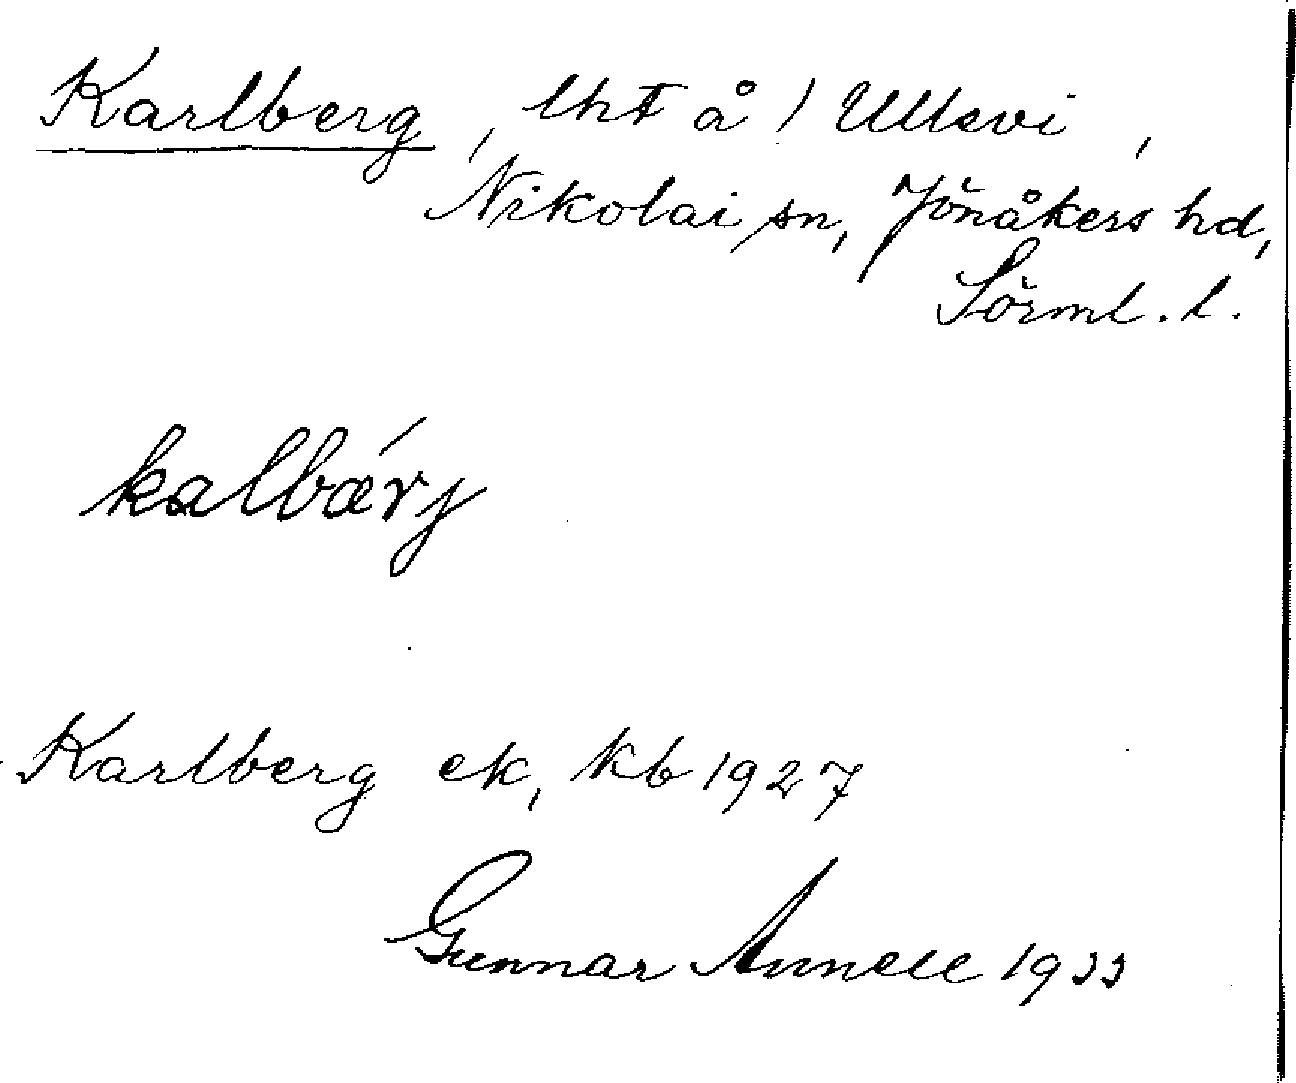 Karlberg, lht å 1 Ullevi,
Nikolai sn, Jönåkers hd,
Sörml. l.
kalbærj
Karlberg ek, kb 1927
Gunnar Annell 1933